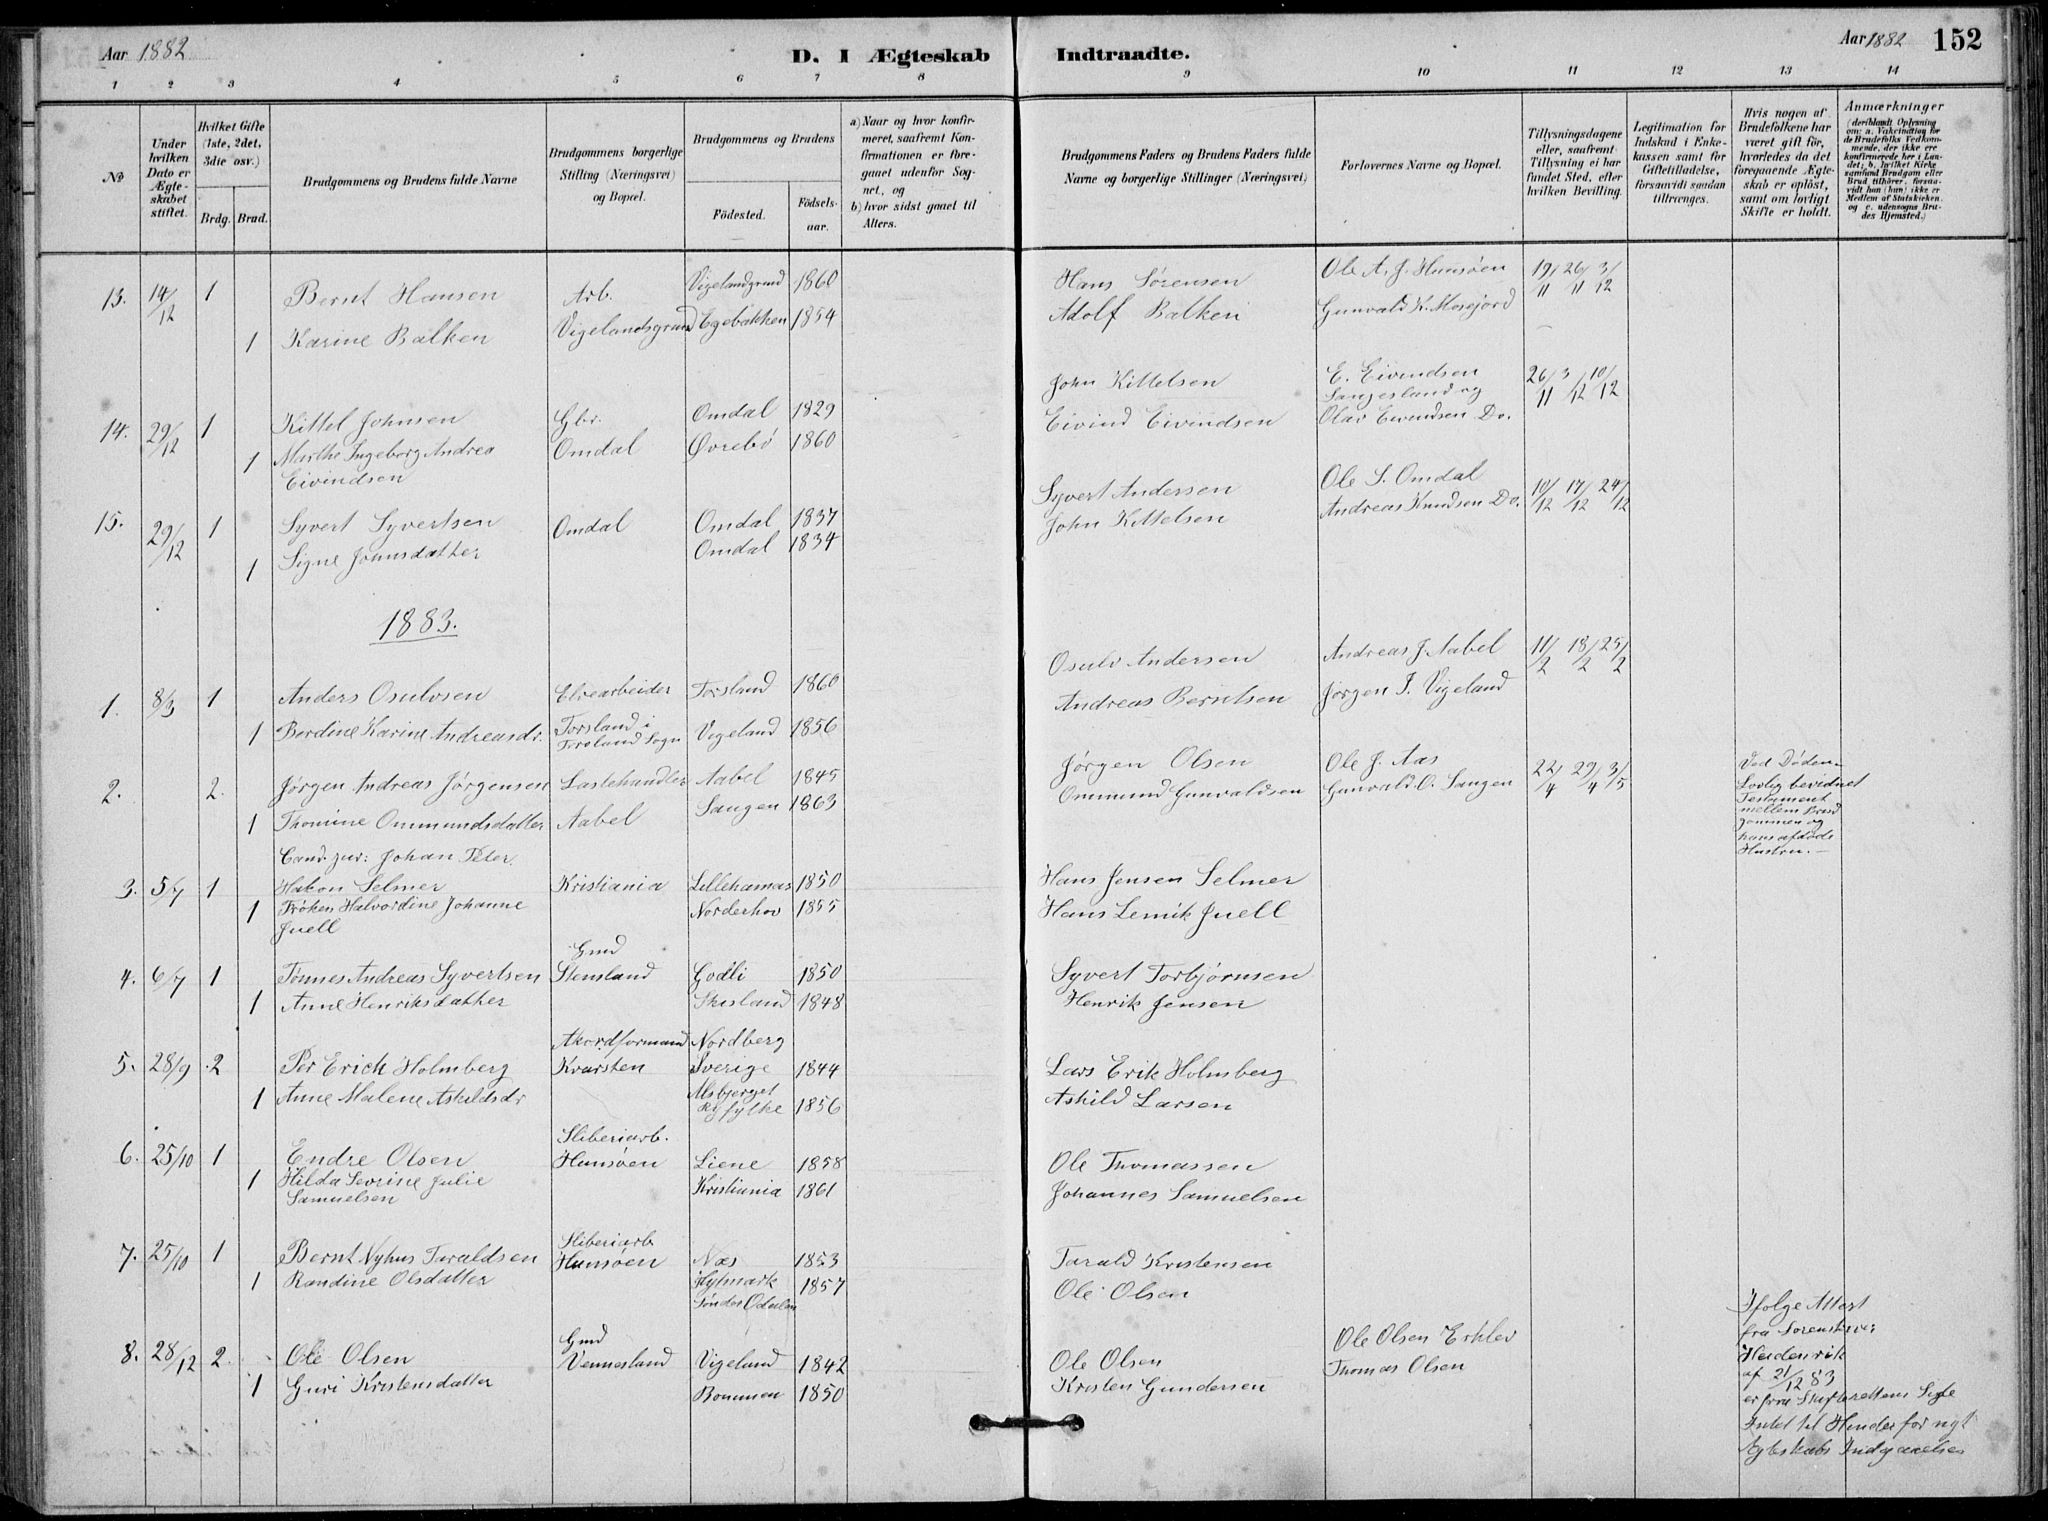 Aar 1882
D. I Ægteskab Indtraadte.
Aar 1882 152
1 2 3 4 5 6 7 8 9 10 11 12 13 14
No
Under hvilken Dato er Ægteskabet stiftet.
Hvilket Gifte (1ste, 2det, 3die osv.)
Brdg. Brud.
Brudgommens og Brudens fulde Navne
Brudgommens borgerlige Stilling (Næringsvei) og Bopæl.
Brudgommens og Brudens
Födested.
Födselsaar.
a) Naar og hvor konfirmeret, saafremt Konfirmationen er foregaaet udenför Sognet, og
b) hvor sidst gaaet til Alters.
Brudgommens Faders og Brudens Faders fulde Navne og borgerlige Stillinger (Næringsvei)
Forlovernes Navne og Bopæl.
Tillysningsdagene eller, saafremt Tillysning ei har fundet Sted, efter hvilken Bevilling.
Legitimation for Indskud i Enkekassen samt for Giftetilladelse, forsaavidt saadan tiltrænges.
Hvis nogen af Brudefolkene har været gift för, hvorledes da det foregaaende Ægteskab er oplöst, samt om lovligt Skifte er holdt.
Anmærkninger (deriblandt Oplysning om: a. Vakcination for de Brudefolks Vedkommende, der ikke ere konfirmerede her i Landet; b. hvilket Kirkesamfund Brudgom eller Brud tilhörer, forsaavidt han (hun) ikke er Medlem af Statskirken, og c. udensogns Brudes Hjemsted.)
13. 14/12 1 Bernt Hansen Arb. Vigelandsgrund 1860 Hans Sørensen Ole A. J. Hunsøen 19/11 26/11 3/12
1 Karine Balken Vigelandsgrund Egebakken 1854 Adolf Balken Gunvald K. Mosejord
14. 29/12 1 Kittel Johnsen Gbr. Omdal 1829 John Kittelsen E. Eivendsen 26/11 3/12 10/12
1 Marthe Ingeborg Andrea Omdal Øvrebø 1860 Eivind Eivindsen Sangesland og
Eivendsen Olav Eivendsen Do.
15. 29/12 1 Syvert Syvertsen Omdal Omdal 1837 Syvert Andersen Ole S. Omdal 10/12 17/12 24/12
1 Signe Johnsdatter Omdal 1834 John Kittelsen Andreas Knudsen Do.
1883.
1. 8/3 1 Anders Osulvsen Elvearbeider Torsland 1860 Osulv Andersen Andreas J. Aabel 11/2 18/2 25/2
1 Berdine Karine Andreasdr. Torsland i Vigeland 1856 Andreas Berntsen Jørgen J. Vigeland
Torsland Sogn
2. 2. Jørgen Andreas Jørgensen Lastehandler Aabel 1845 Jørgen Olsen Ole J. Aas 22/4 29/4 3/5 Ved Døden.
1 Thomine Ommundsdatter Aabel Saugen 1863 Ommund Gunvaldsen Gunvald O. Saugen Lovlig bevidnet
Testament
mellem Brud
gommen og
hans afdøde
Hustru. —
Cand. jur: Johan Peter
3. 5/7 1 Hakon Selmer Kristiania Lillehamar 1850 Hans Jensen Selmer
1 Frøken Halvordine Johanne Norderhov 1855 Hans Lemik Juell
Juell
Gmd
4. 6/7 1 Tønnes Andreas Syvertsen Stensland Godli 1850 Syvert Torbjørnsen
1 Anne Henriksdatter Skisland 1848 Henrik Jensen
Akordformand Nordberg
5. 28/9 2 Per Erich Holmberg Kvarsten Sverige 1844 Lars Erik Holmberg
1 Anne Malene Askildsdr Alsbjerget
Ryfylke 1856 Askild Larsen
Sliberiarb.
6. 25/10 1 Endre Olsen Hunsøen Liene 1858 Ole Thomassen
1 Hilda Sevrine Julie Kristiania 1861 Johannes Samuelsen
Samuelsen
Sliberiarb
7. 25/10 1 Bernt Nyhus Taraldsen Hunsøen Næs 1853 Tarald Kristensen
1 Randine Olsdatter 1857 Ole Olsen
Søndre Odalen
Gmd
8. 28/12 2. Ole Olsen Vennesland Vigeland 1842 Ole Olsen Ole Olsen Eiklev
1 Guri Kristensdatter Bommen 1850 Kristen Gundersen Thomas Olsen
Ifølge Attest
fra Sorenskriver
Heidenrik
af 21/12 83
er fra Skifterettens Side
Intet til Hinder for nyt
Ægteskabs Indgaaelse